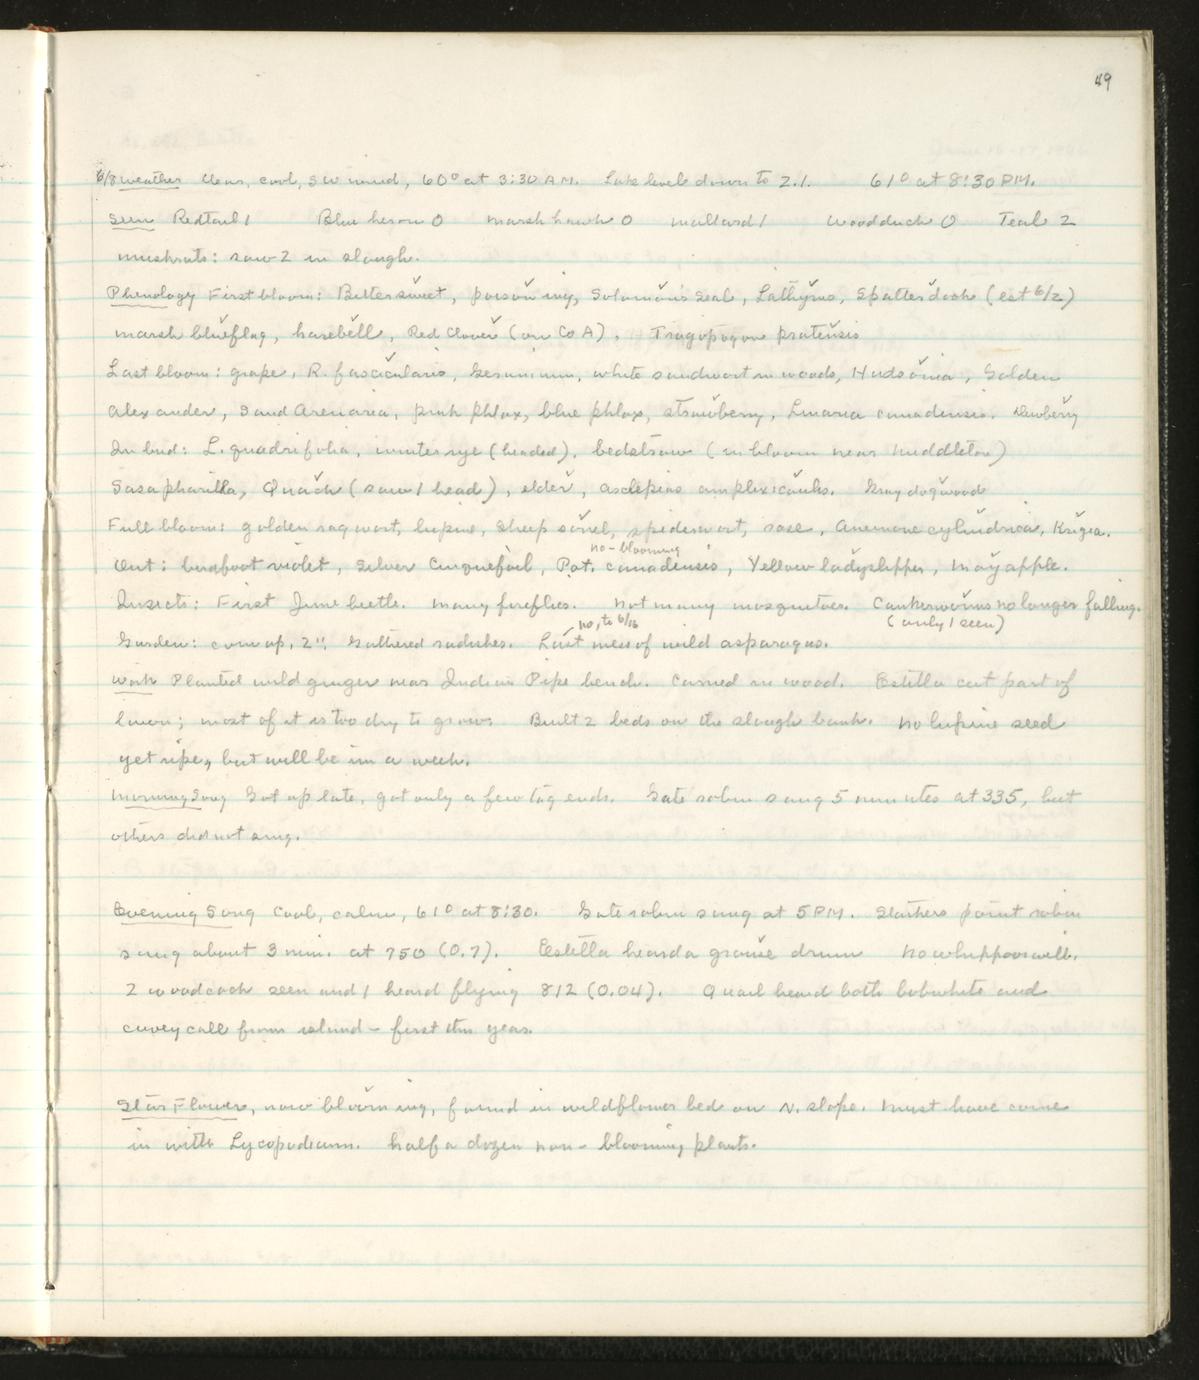 49
6/8 Weather Clear, cool, SW wind, 60° at 3:30 A.M. Lake level down to 2.1. 61° at 8:30 PM.
Seen Redtail 1 Blue heron 0 Marsh hawk 0 Mallard 1 Woodduck 0 Teal 2
Muskrats: saw 2 in slough.
Phenology First bloom: Bittersweet, poison ivy, Solomon's Seal, Lathyrus, Spatterdock (est 6/2)
marsh blueflag, harebell, Red Clover (on Co A), Tragopogon pratensis
Last bloom: grape, R. fascicularis, Geranium, white sandwort in woods, Hudsonia, Golden
Alexander, Sand Arenaria, pink phlox, blue phlox, strawberry, Linaria canadensis. Dewberry
In bud: L. quadrifolia, winter rye (headed), bedstraw (in bloom near Middleton)
Sasapharilla, Quack (saw 1 head), elder, asclepias amplexicaulis. Gray dogwood
Full bloom: golden ragwort, lupine, sheep sorrel, spiderwort, rose, Anemone cylindrica, Krigia.
no - blooming
Out: birdfoot violet, Silver Cinquefoil, Pot. canadensis, Yellow ladyslipper, Mayapple.
Insects: First June beetle. Many fireflies. Not many mosquitoes. Cankerworms no longer falling.
(only 1 seen)
no, to 6/16
Garden: corn up, 2". Gathered radishes. Last mess of wild asparagus.
Work Planted wild ginger near Indian Pipe bench. Carried in wood. Estella cut part of
lawn; most of it is too dry to grow. Built 2 beds on the slough bank. No lupine seed
yet ripe, but will be in a week.
Morning Song Got up late, got only a few tag ends. Gate robin sang 5 minutes at 335, but
others did not sing.
Evening Song Cool, calm, 61° at 8:30. Gate robin sang at 5 PM. point robin
sang about 3 min. at 750 (0.7). Estella heard a grouse drum No whippoorwill.
2 woodcock seen and 1 heard flying 812 (0.04). Quail heard both bobwhite and
covey call from island - first this year.
Star Flower, now blooming, found in wildflower bed on N. slope. Must have come
in with Lycopodium. Half a dozen non-blooming plants.